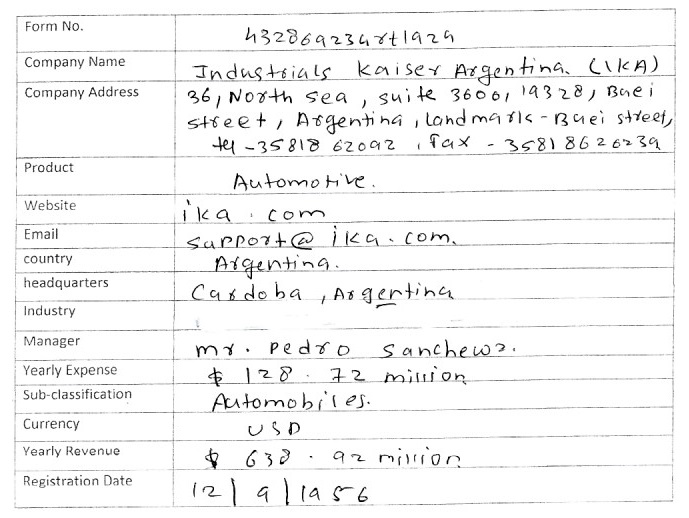 Form No. 432869234rt1929
Company Name Industrials Kaiser Argentina. (IKA)
Company Address 36, North sea, suite 3600, 19328, Buei
street, Argentina, Landmark - Buei street,
tel - 35818 62092, Fax - 358186 26239
Product Automotive.
Website ika.com
Email support@ika.com.
country Argentina.
headquarters Cardoba, Argentina
Industry
Manager mr. Pedro Sanchewz.
Yearly Expense $ 128.72 million
Sub-classification Automobiles.
Currency USD
Yearly Revenue $ 638.92 million
Registration Date 12|9|1956